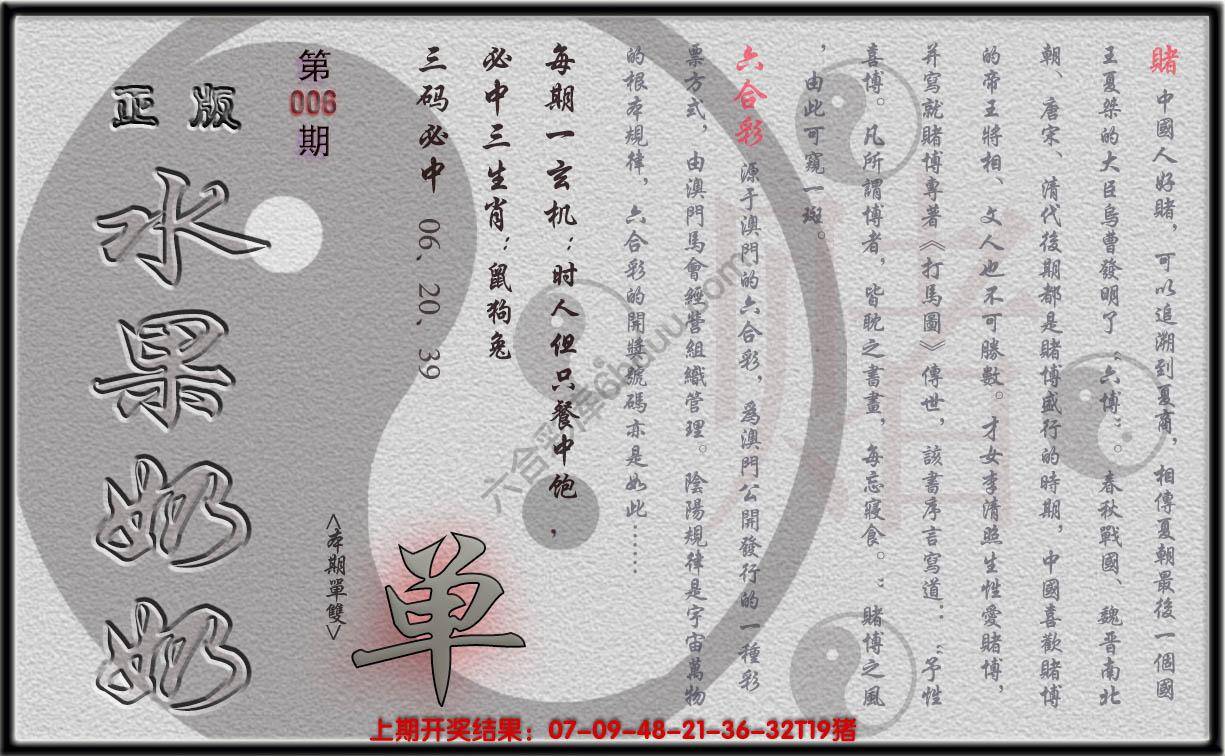 賭 中國人好賭，可以追溯到夏商，相傳夏朝最後一個國
王夏桀的大臣烏曹發明了“六博”。春秋戰國、魏晋南北
朝、唐宋、清代後期都是賭博盛行的時期，中國喜歡賭博
的帝王將相、文人也不可勝數。才女李清照生性愛賭博，
并寫就賭博專著《打馬圖》傳世，該書序言寫道：“予性
喜博。凡所謂博者，皆眈之書畫，每忘寢食。”賭博之風
，由此可窺一斑。
六合彩 源于澳門的六合彩，爲澳門公開發行的一種彩
票方式，由澳門馬會經營組織管理。陰陽規律是宇宙萬物
的根本規律，六合彩的開獎號碼亦是如此……
每期一玄机：时人但只餐中饱，
必中三生肖：鼠狗兔
三码必中 06、20、39
第
006
期
<本期單雙>
单
正版
水果奶奶
賭
六合彩库6huuu.com
上期开奖结果：07-09-48-21-36-32T19猪